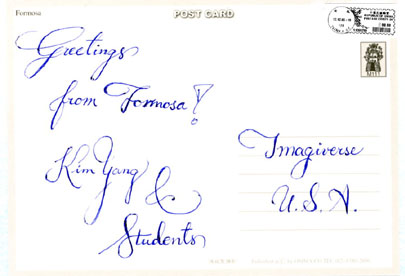 Formosa
POST CARD
Greetings
from Formosa!
Kim Yang
&
Students
Imagiverse
U.S.A.